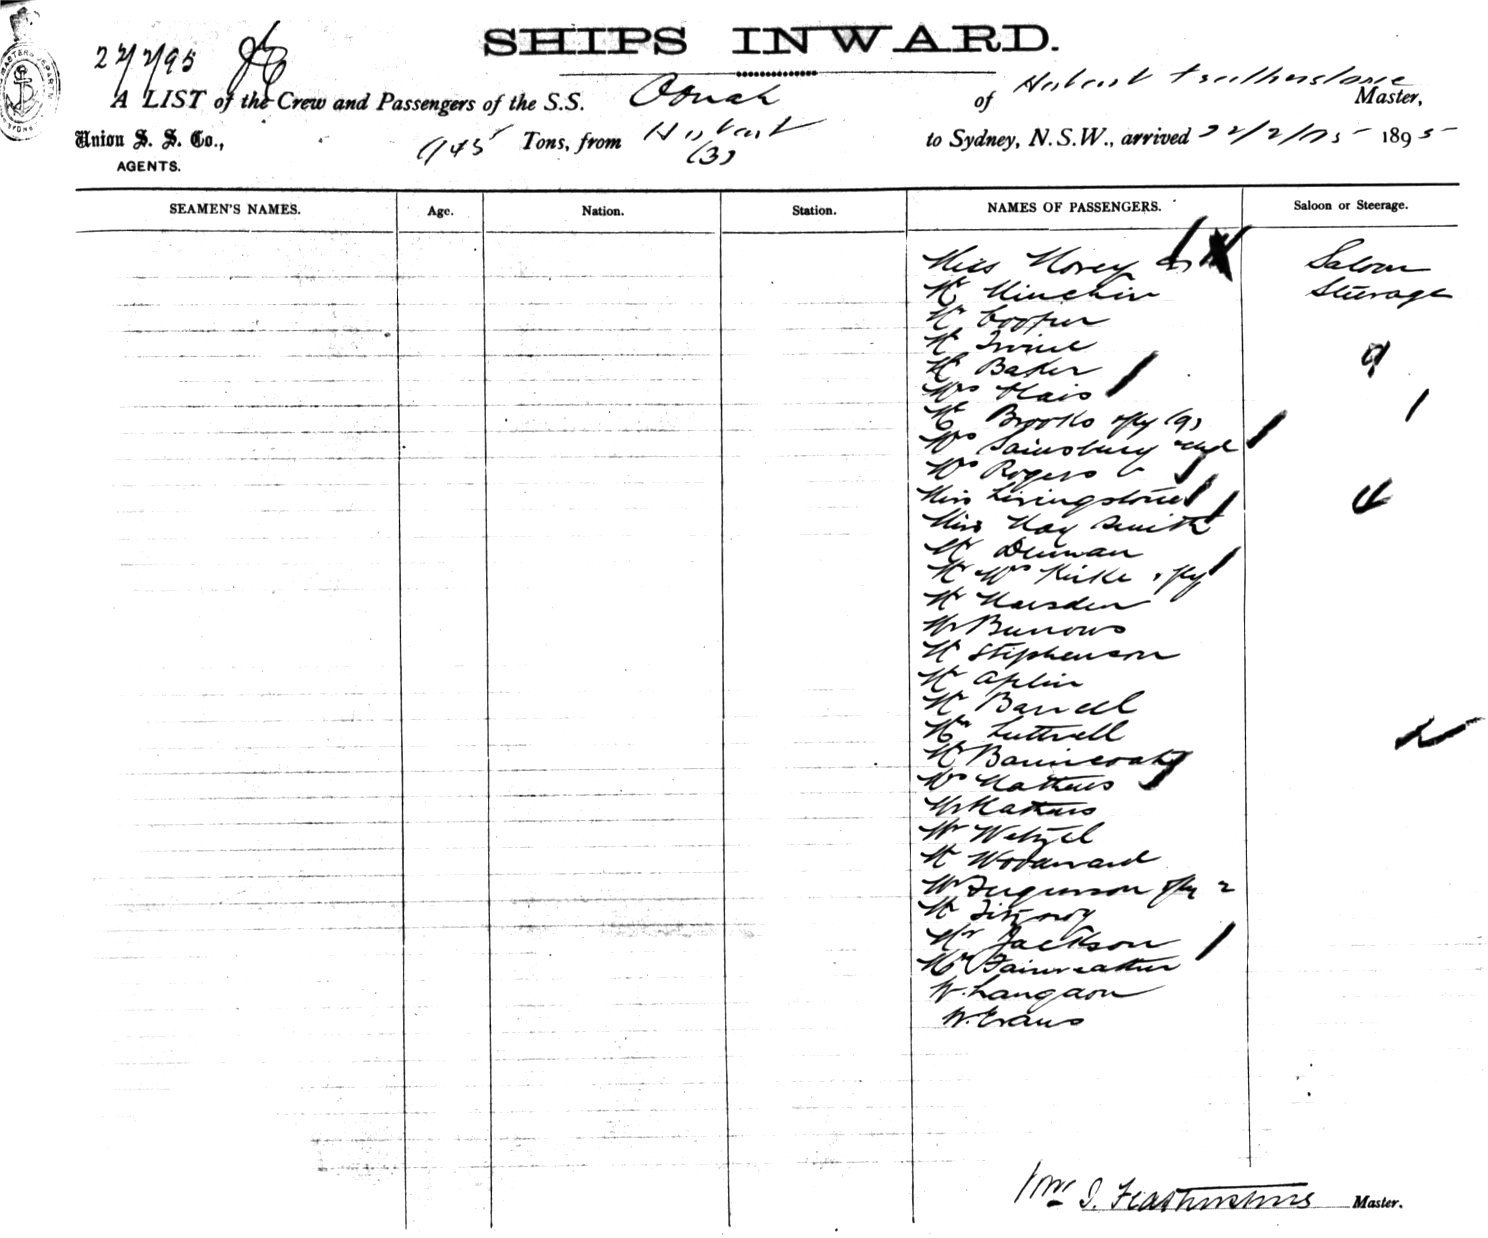 SHIPS INWARD.
22/2/95
A LIST of the Crew and Passengers of the S.S. Oonah of Featherstone Master,
Union S. S. Co., Tons, from Hobart to Sydney, N.S.W., arrived 22/2/95 1895
AGENTS. (3)
SEAMEN'S NAMES. Age. Nation. Station. NAMES OF PASSENGERS. Saloon or Steerage.
Miss Saloon
Mr Minchin Steerage
Mr Cooper
Mr Irvine
Mr Baker 9
Mrs
Mr Brooks (9)
Mrs Sainsbury
Mrs Rogers
Miss Livingstone 4
Miss Kay Smith
Mr Denman
Mr Mrs Kirke
Mr Marsden
Mr Burrows
Mr Stephenson
Mr Aplin
Mr
Mr Luttrell
Mr
Mrs Mathews
Mr Mathews
Mr Wetzel
Mr Woodward
Mr Fergusson 2
Mr Fitzroy
Mr Jackson
Mr Fairweather
W. Langdon
W. Evans
Featherstone Master.